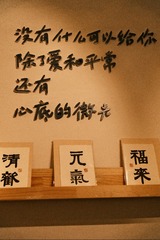 没有什么可以给你
除了爱和平常
还有
心底的微光
清歡
元氣
福來